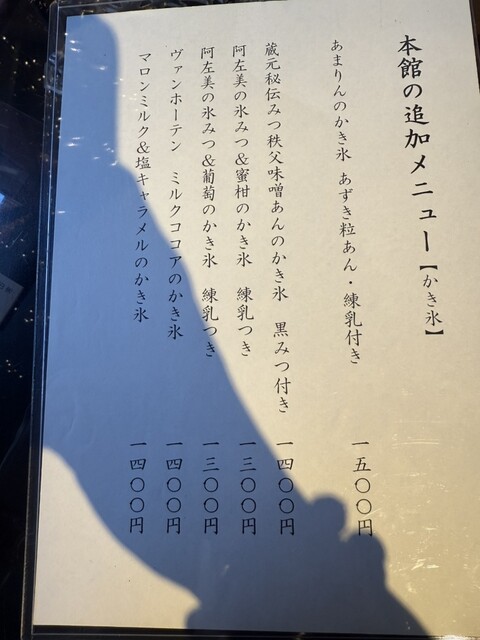 本館の追加メニュー【かき氷】
あまりんのかき氷 あずき粒あん・練乳付き 一五〇〇円
蔵元秘伝みつ秩父味噌あんのかき氷 黒みつ付き 一四〇〇円
阿左美の氷みつ&蜜柑のかき氷 練乳つき 一三〇〇円
阿左美の氷みつ&葡萄のかき氷 練乳つき 一三〇〇円
ヴァンホーテン ミルクココアのかき氷 一四〇〇円
マロンミルク&塩キャラメルのかき氷 一四〇〇円